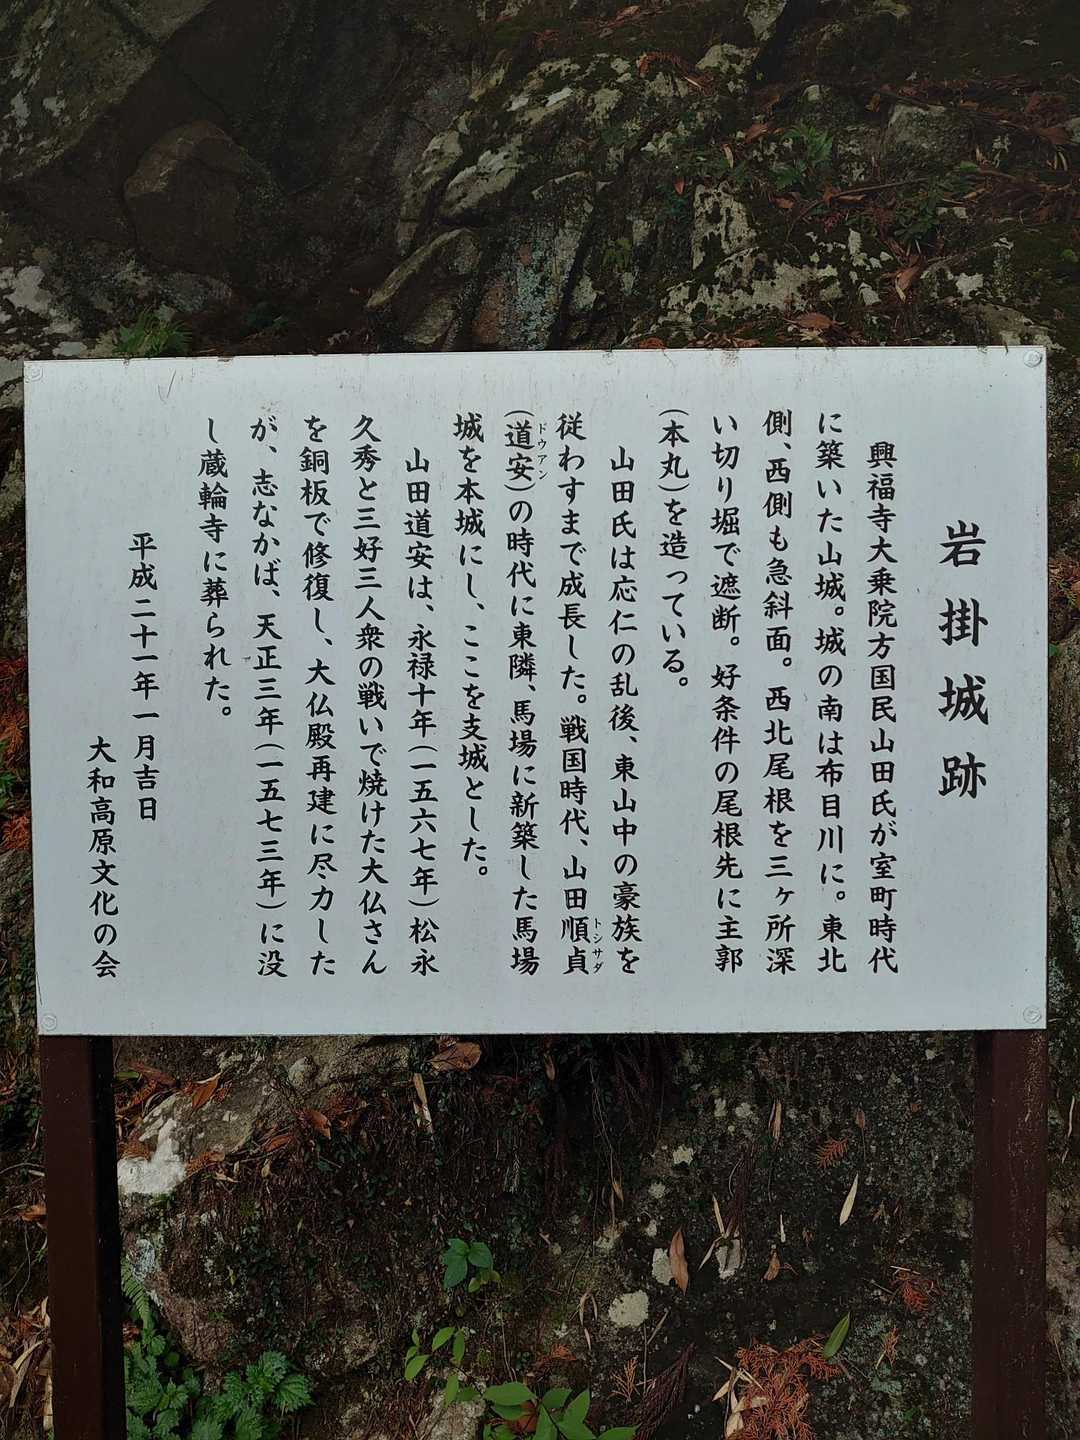 岩掛城跡
興福寺大乗院方国民山田氏が室町時代
に築いた山城。城の南は布目川に。東北
側、西側も急斜面。西北尾根を三ヶ所深
い切り堀で遮断。好条件の尾根先に主郭
(本丸)を造っている。
山田氏は応仁の乱後、東山中の豪族を
従わすまで成長した。戦国時代、山田順貞
トシサダ
(道安)の時代に東隣、馬場に新築した馬場
ドウアン
城を本城にし、ここを支城とした。
山田道安は、永禄十年(一五六七年)松永
久秀と三好三人衆の戦いで焼けた大仏さん
を銅板で修復し、大仏殿再建に尽力した
が、志なかば、天正三年(一五七三年)に没
し蔵輪寺に葬られた。
平成二十一年一月吉日
大和高原文化の会